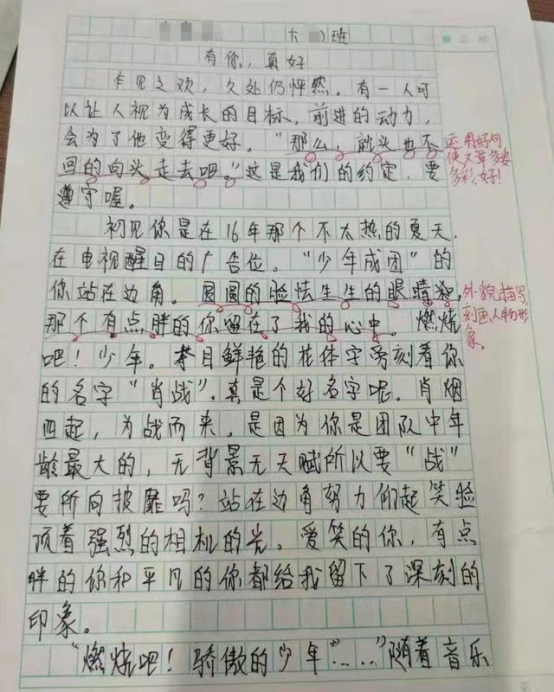 六 班
有你,真好
乍见之欢,久处仍怦然。有一人可
以让人视为成长的目标,前进的动力,
会为了他变得更好。“那么,就头也不
回的向头走去吧。”这是我们的约定,要
遵守喔。
初见你是在16年那个不太热的夏天,
在电视醒目的广告位。“少年成团”的
你站在边角。圆圆的脸怯生生的眼睛和
那个有点胖的你留在了我的心中。燃烧
吧!少年。醒目鲜艳的花体字旁刻着你
的名字“肖战”。真是个好名字呢。肖烟
四起,为战而来,是因为你是团队中年
龄最大的,无背景无天赋所以要“战”
要所向披靡吗?站在边角努力仰起笑脸
顶着强烈的相机的光。爱笑的你,有点
胖的你和平凡的你都给我留下了深刻的
印象。
“燃烧吧!骄傲的少年”……”随着音乐
运用好句
使文章多姿
多彩,好!
外貌描写
刻画人物形
象。